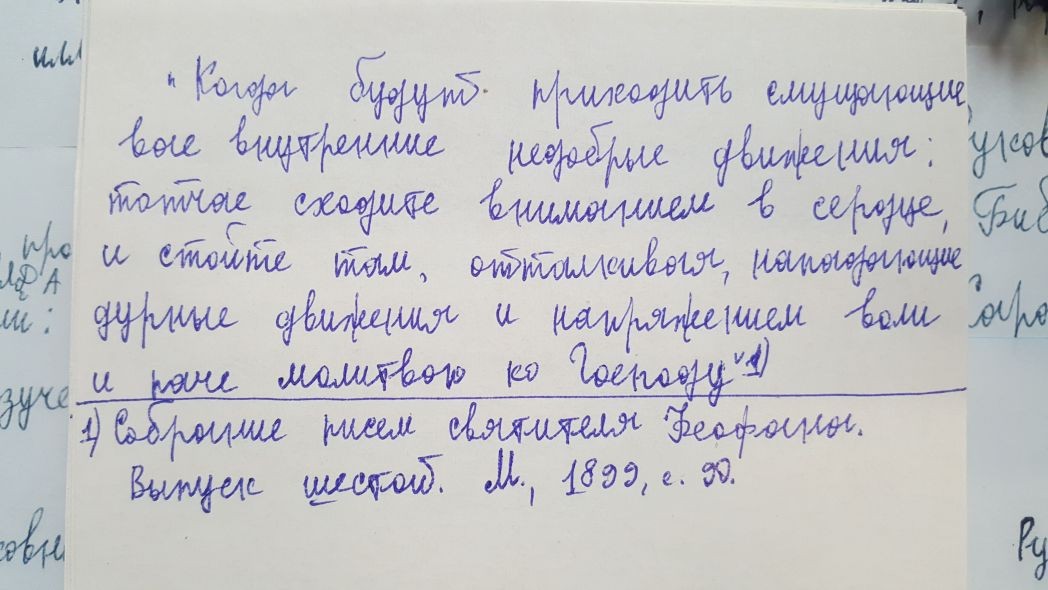 "Когда будут приходить смущающие
вас внутренние недобрые движения:
тотчас сходите вниманием в сердце,
и стойте там, отталкивая, нападающие
дурные движения и напряжением воли
и паче молитвою ко Господу" 1)
1) Собрание писем святителя Феофана.
Выпуск шестой. М., 1899, с. 90.
илл
про
А
ми:
зуче
овн
уков
Биб
Ру